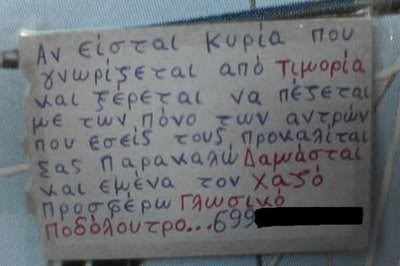 Αν είσται κυρία που
γνωρίζεται από τιμορία
και ξέρεται να πέζεται
με των πόνο των αντρών
που εσείς τους προκαλίται
σας παρακαλώ Δαμάσται
και εμένα τον χαζό
προσφέρω Γλωσικό
ποδόλουτρο...699